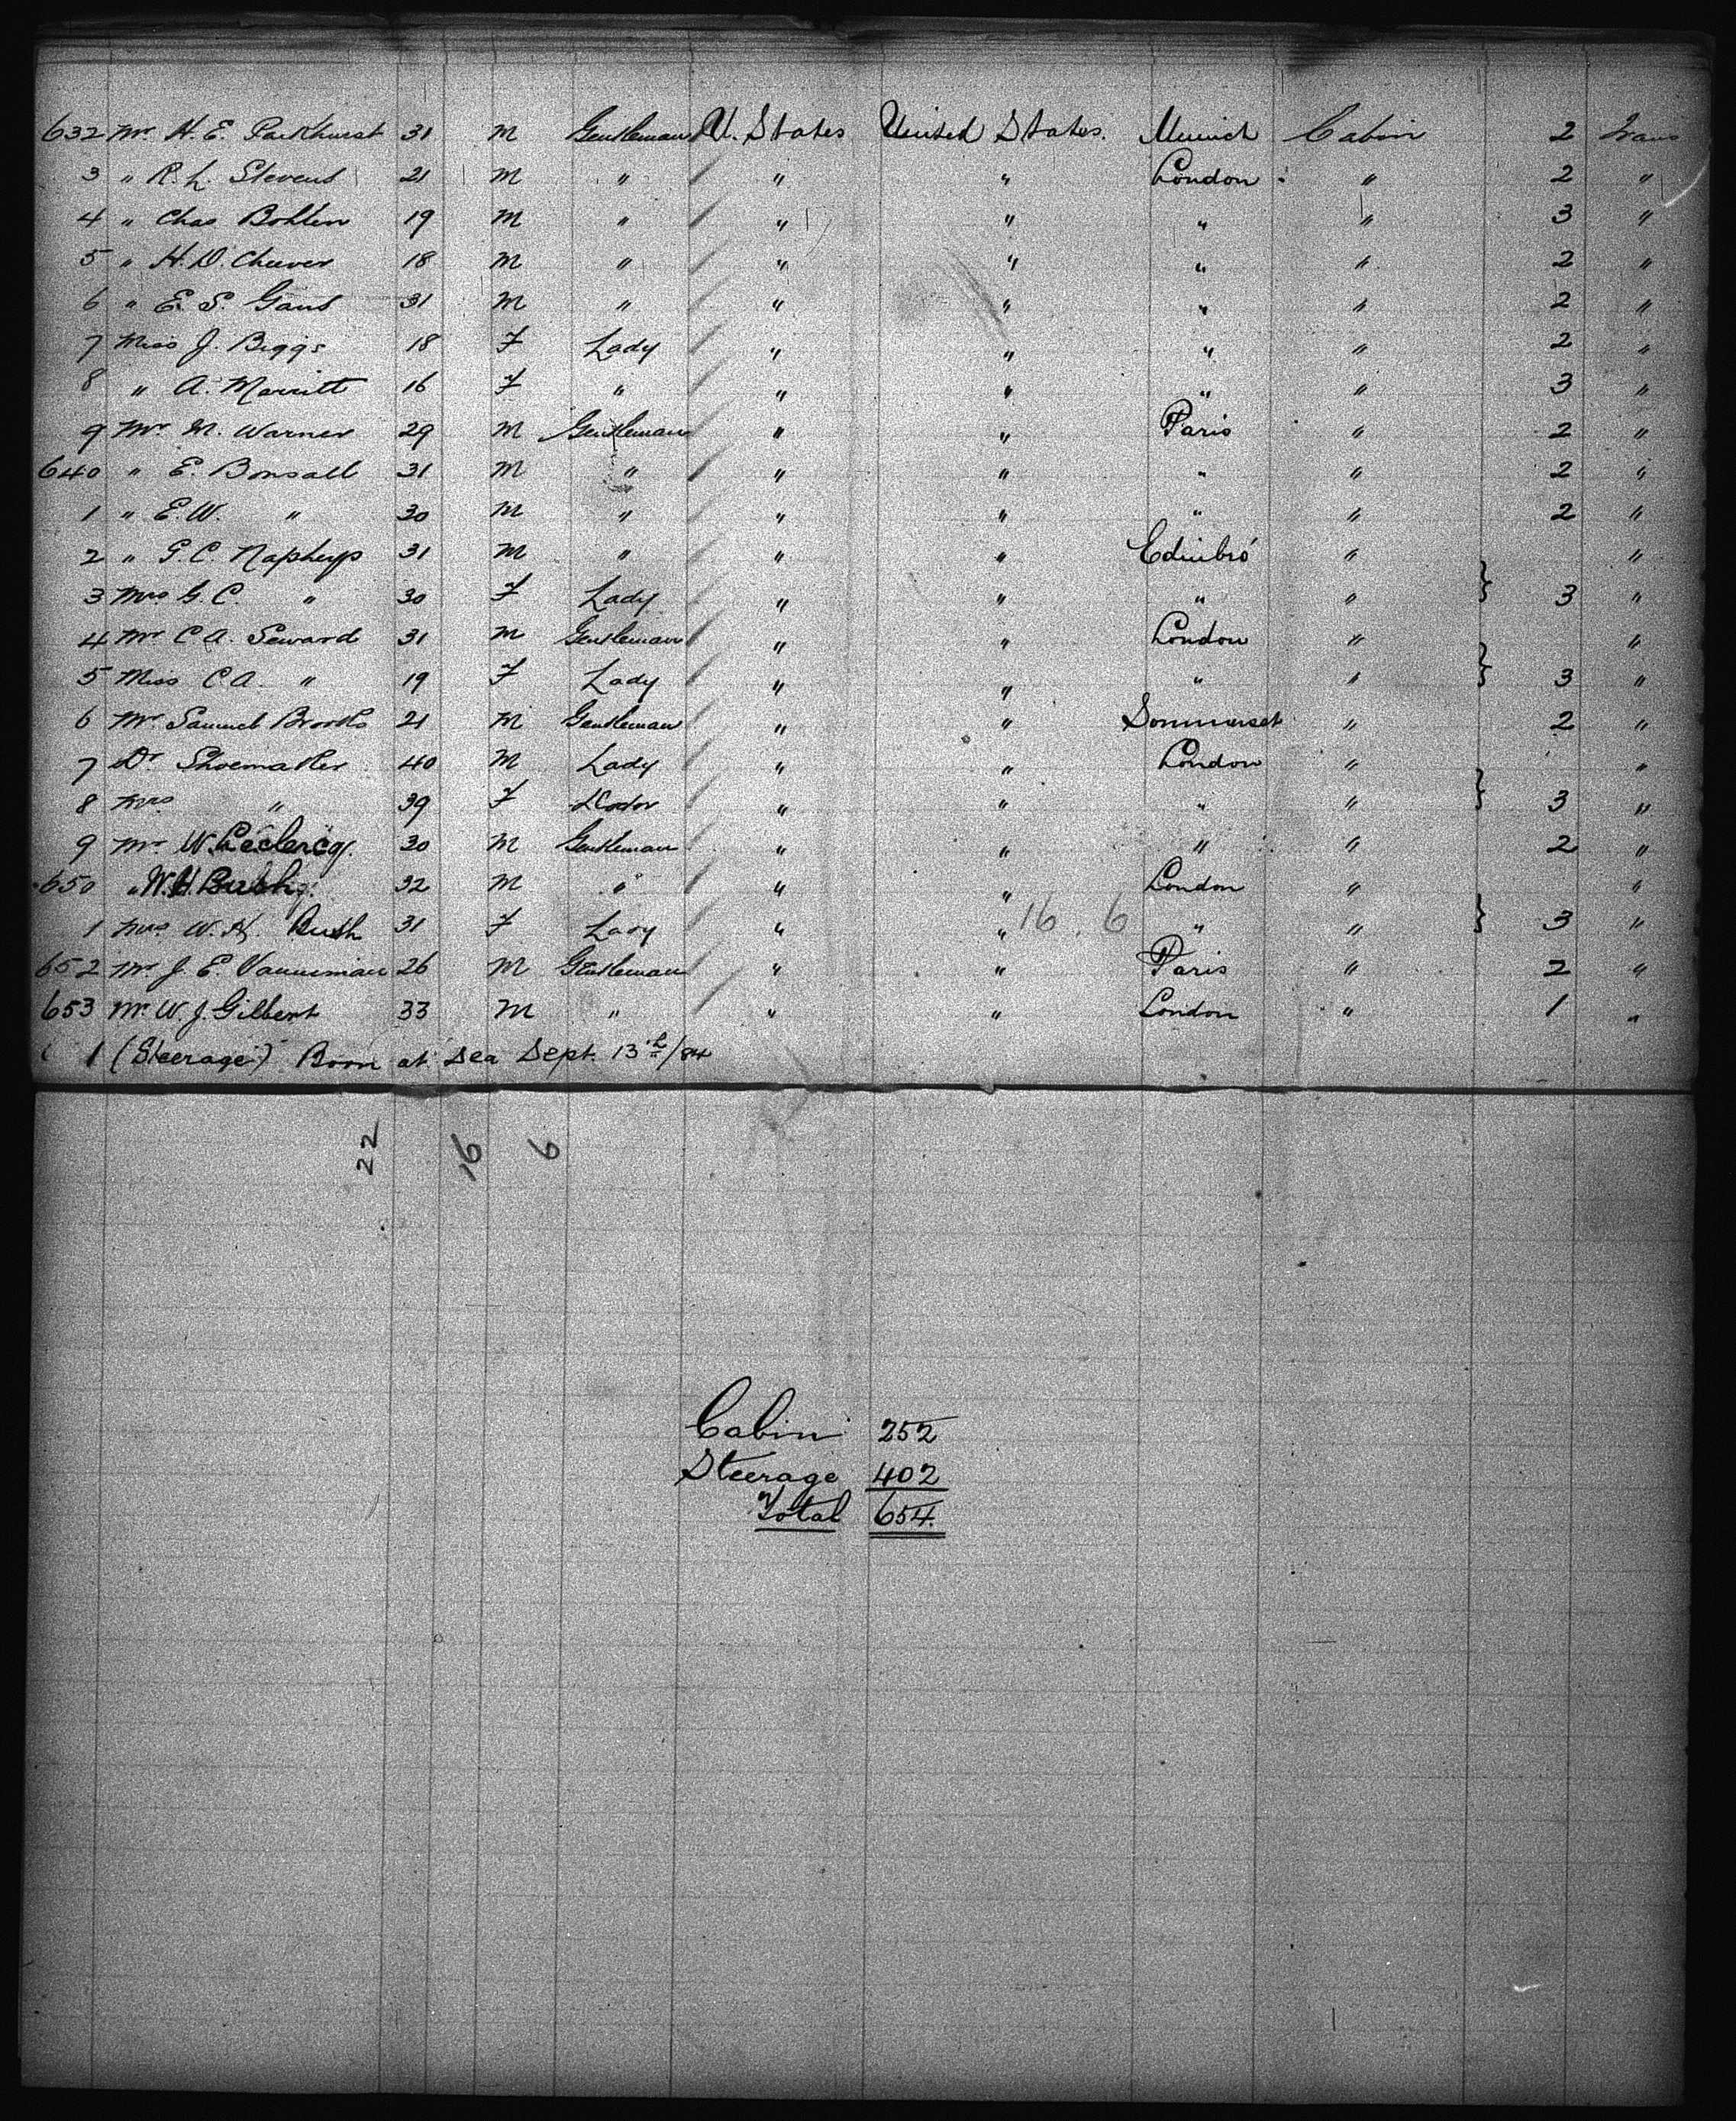 632 Mr H. E. Parkhurst 31 M Gentleman U. States United States. Munich Cabin 2 Trans
3 " R. L. Stevens 21 M " " " London " 2 "
4 " Chas Bohlen 19 M " " " " " 3 "
5 " H. D. Cheever 18 M " " " " " 2 "
6 " E. S. Gans 31 M " " " " " 2 "
7 Miss J. Biggs 18 F Lady " " " " 2 "
8 " A. Merritt 16 F " " " " " 3 "
9 Mr M. Warner 29 M Gentleman " " Paris " 2 "
640 " E. Bonsall 31 M " " " " " 2 "
1 " E. W. " 30 M " " " " " 2 "
2 " G. C. Napheys 31 M " " " Edinbro' " "
3 Mrs G. C. " 30 F Lady " " " " } 3 "
4 Mr C. A. Seward 31 M Gentleman " " London " "
5 Miss C A. " 19 F Lady " " " " } 3 "
6 Mr Samuel Brooks 21 M Gentleman " " Sommerset " 2 "
7 Dr Shoemaker 40 M Lady " " London " "
8 Mrs " 39 F " " " " } 3 "
9 Mr W. Leclercq. 30 M Gentleman " " " " 2 "
650 " W. H. Bush 32 M " " " London " "
1 Mrs W. H. Bush 31 F Lady " " 16. 6 " " } 3 "
652 Mr J. E. Vanneman 26 M Gentleman " " Paris " 2 "
653 Mr W. J. Gilbert 33 M " " " London " 1 "
1 (Steerage) Born at Sea Sept. 13th/84
22 16 6
Cabin 252
Steerage 402
Total 654.